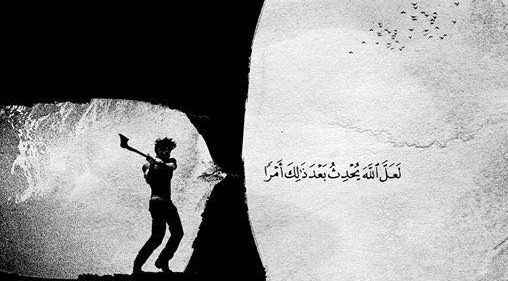 لَعَلَّ ٱللَّهَ يُحۡدِثُ بَعۡدَ ذَٰلِكَ أَمۡرٗا